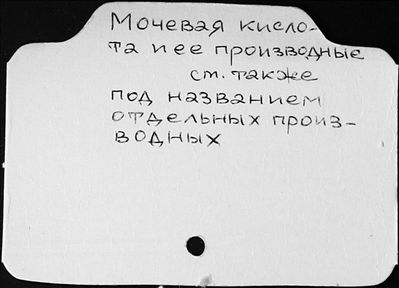 Мочевая кисло-
та и ее производные
см. также
под названием
отдельных произ-
водных